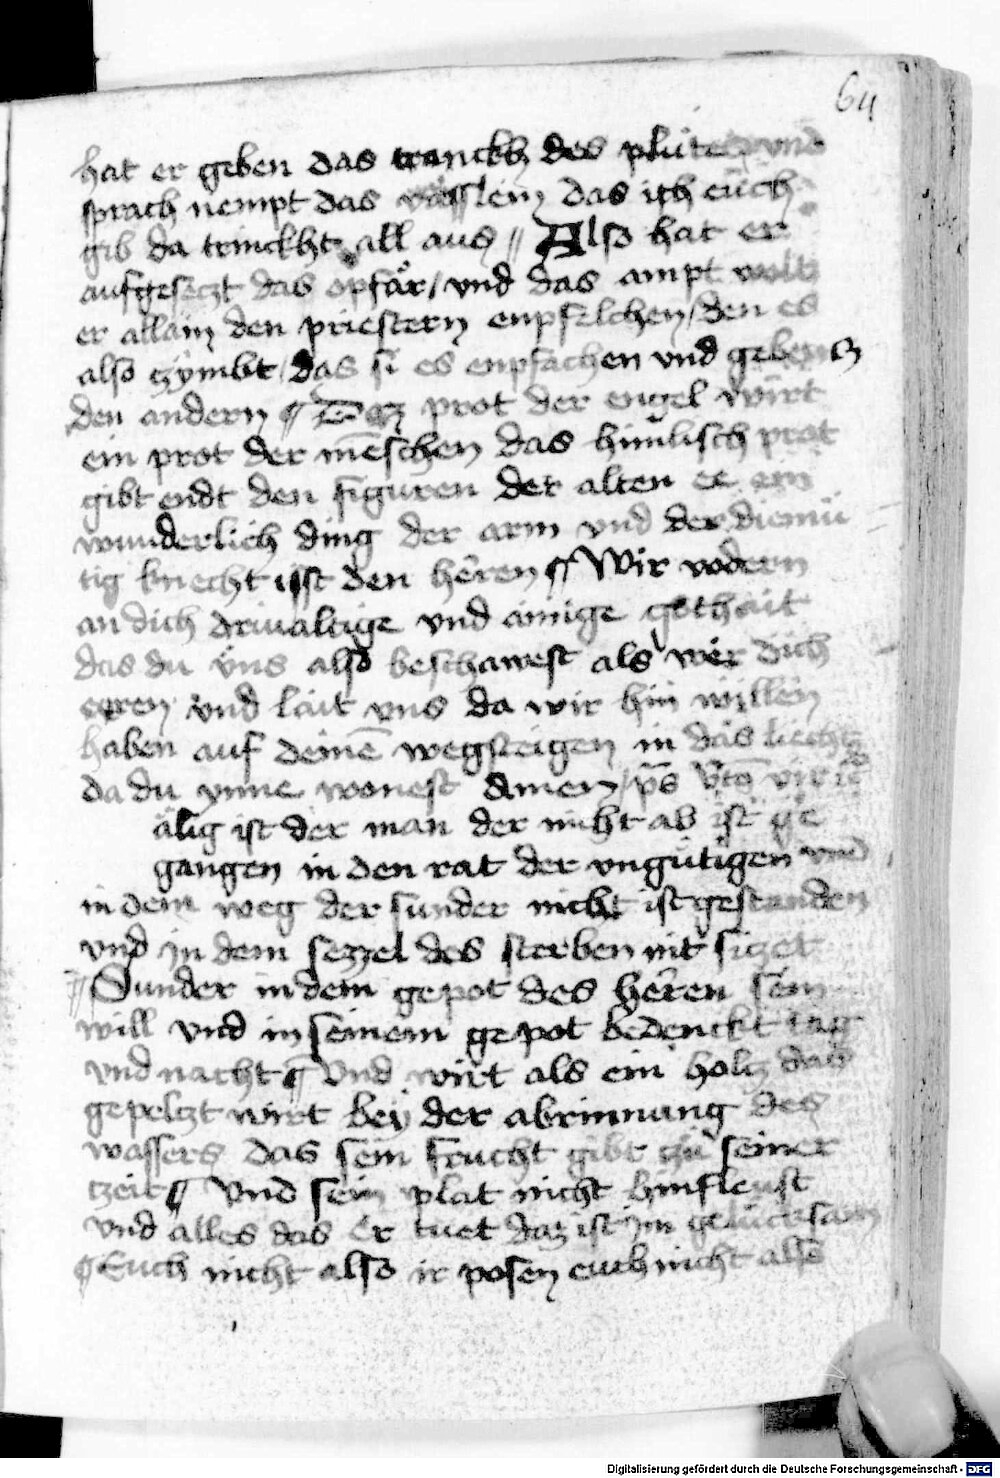 64
hat er geben das tranckh des plütes und
sprach nempt das vässlein das ich eüch
gib da trinckht all aus // Also hat er
aufgeseczt das opfär / vnd das ampt wolt
er allain den priestern enpfelchen / den es
also czymbt / das si es enpfachen vnd geben
den andern ¶ Daz prot der engel wirt
ein prot der mēschen das himlisch prot
gibt endt den figuren der alten ee ein
wunderlich ding der arm vnd der diemü
tig knecht isst den herren ¶ Wir vodern
an dich driualtige vnd ainige gothait
das du vns also beschawest als wer dich
eeren vnd lait vns da wir hin willen
haben auf deinē wegsteigen in das liecht
da du ynne wonest Amen / p̄s
älig ist der man der nicht ab ist ge
gangen in den rat der vngütigen vnd
in dem weg der sunder nicht ist gestanden
vnd in dem sezzel des sterben nit siczet
// Sunder in dem gepot des herren sein
will vnd in seinem gepot bedenckt tag
vnd nacht ¶ Vnd wirt als ein holcz das
gepelczt wirt bey der abrinnung des
wassers das sein frucht gibt czu seiner
tzeit ¶ Vnd sein plat nicht hinfleust
vnd alles das er tuet daz ist im gelücksam
¶ Euch nicht also ir posen euch nicht also
Digitalisierung gefördert durch die Deutsche Forschungsgemeinschaft - DFG